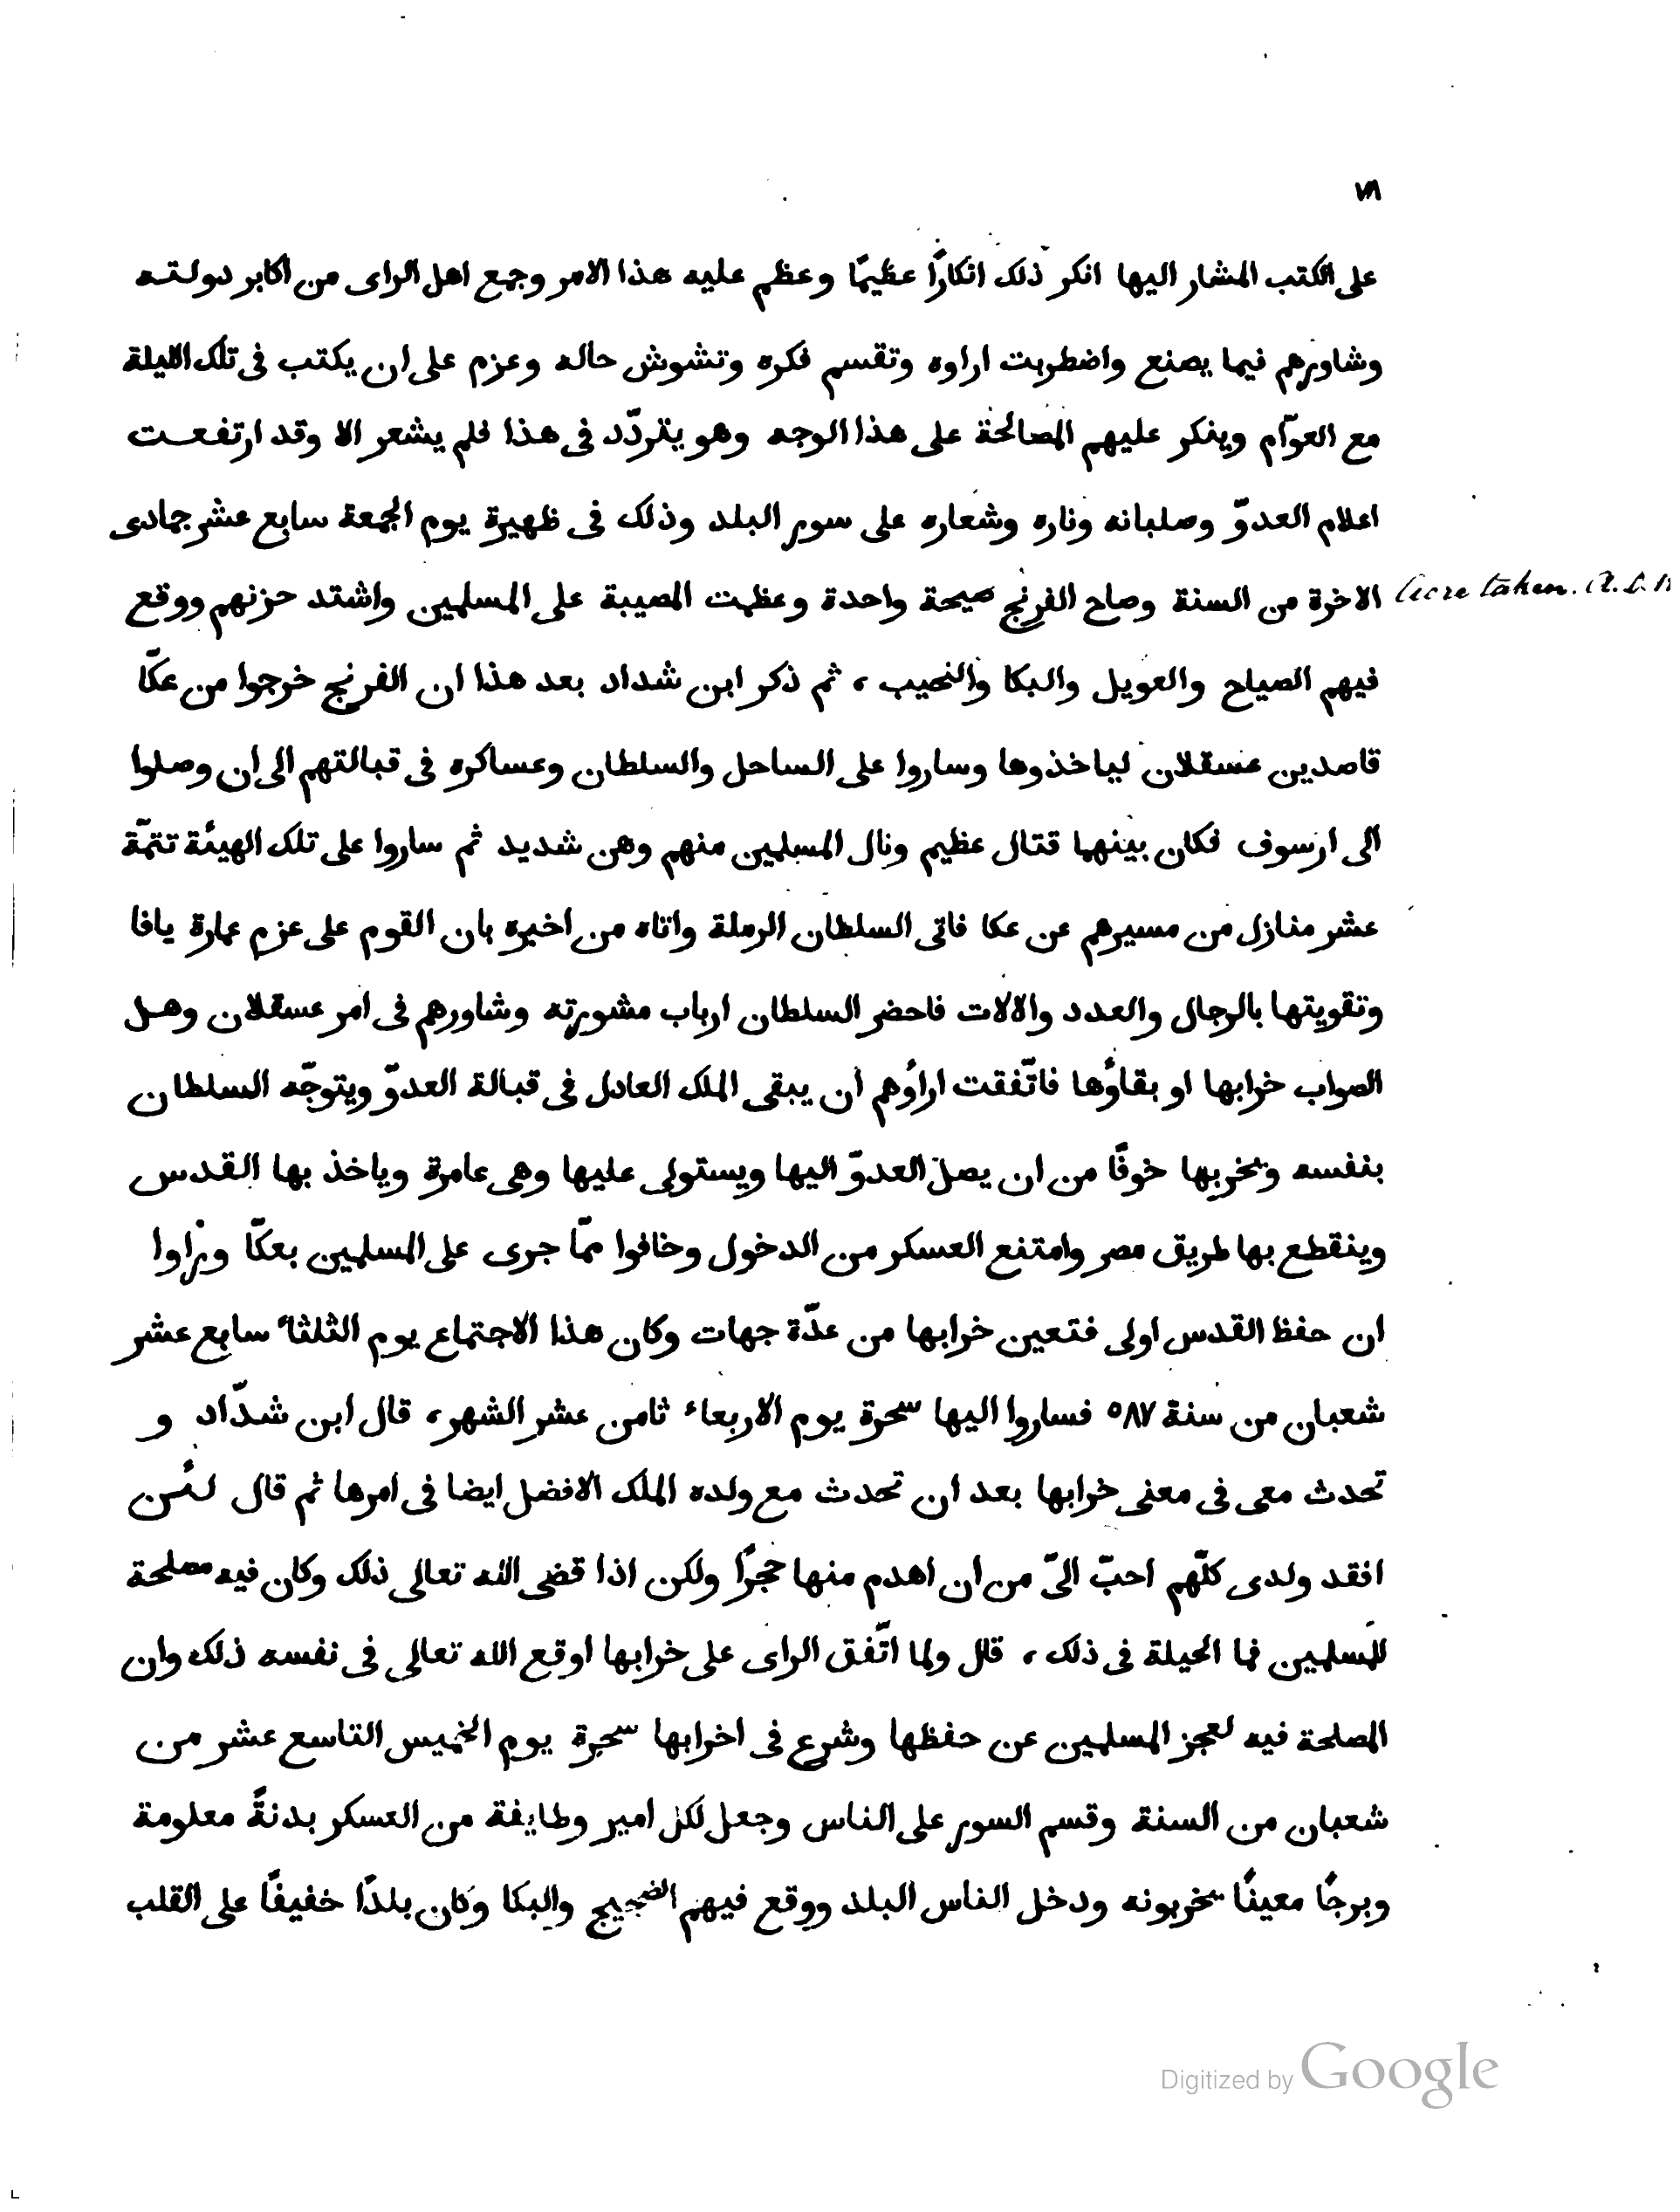 على الكتب المشار اليها انكر ذلك انكارًا عظيمًا وعظم عليه هذا الامر وجمع اهل الراى من اكابر دولته
وشاورهم فيما يصنع واضطربت اراوه وتقسم فكره وتشوش حاله وعزم على ان يكتب فى تلك الليلة
مع العوّام وينكر عليهم المصالحة على هذا الوجه وهو يتردّد فى هذا فلم يشعر الا وقد ارتفعت
اعلام العدوّ وصلبانه وناره وشعاره على سور البلد وذلك فى ظهيرة يوم الجمعة سابع عشر جمادى
الاخرة من السنة وصاح الفرنج صيحة واحدة وعظمت المصيبة على المسلمين واشتد حزنهم ووقع
Acre taken. A.D.
فيهم الصياح والعويل والبكا والنحيب، ثم ذكر ابن شداد بعد هذا ان الفرنج خرجوا من عكّا
قاصدين عسقلان لياخذوها وساروا على الساحل والسلطان وعساكره فى قبالتهم الى ان وصلوا
الى ارسوف فكان بينهما قتال عظيم ونال المسلمين منهم وهن شديد ثم ساروا على تلك الهيئة تتمّة
عشر منازل من مسيرهم عن عكا فاتى السلطان الرملة واتاه من اخبره بان القوم على عزم عمارة يافا
وتقويتها بالرجال والعدد والالات فاحضر السلطان ارباب مشورته وشاورهم فى امر عسقلان وهل
الصواب خرابها او بقاؤها فاتّفقت اراؤهم ان يبقى الملك العادل فى قبالة العدوّ ويتوجّه السلطان
بنفسه ويخربها خوفًا من ان يصل العدوّ اليها ويستولى عليها وهى عامرة وياخذ بها القدس
وينقطع بها طريق مصر وامتنع العسكر من الدخول وخافوا ممّا جرى على المسلمين بعكّا وراوا
ان حفظ القدس اولى فتعين خرابها من عدّة جهات وكان هذا الاجتماع يوم الثلثاء سابع عشر
شعبان من سنة ٥٨٧ فساروا اليها سحرة يوم الاربعاء ثامن عشر الشهر، قال ابن شدّاد و
تحدث معى فى معنى خرابها بعد ان تحدث مع ولده الملك الافضل ايضا فى امرها ثم قال لئن
افقد ولدى كلّهم احبّ الىّ من ان اهدم منها حجرًا ولكن اذا قضى الله تعالى ذلك وكان فيه مصلحة
للمسلمين فما الحيلة فى ذلك، قال ولما اتّفق الراى على خرابها اوقع الله تعالى فى نفسه ذلك وان
المصلحة فيه لعجز المسلمين عن حفظها وشرع فى اخرابها سحرة يوم الخميس التاسع عشر من
شعبان من السنة وقسم السور على الناس وجعل لكل امير وطايفة من العسكر بدنةً معلومة
وبرجًا معينًا يخربونه ودخل الناس البلد ووقع فيهم الضجيج والبكا وكان بلدًا خفيفًا على القلب
Digitized by Google